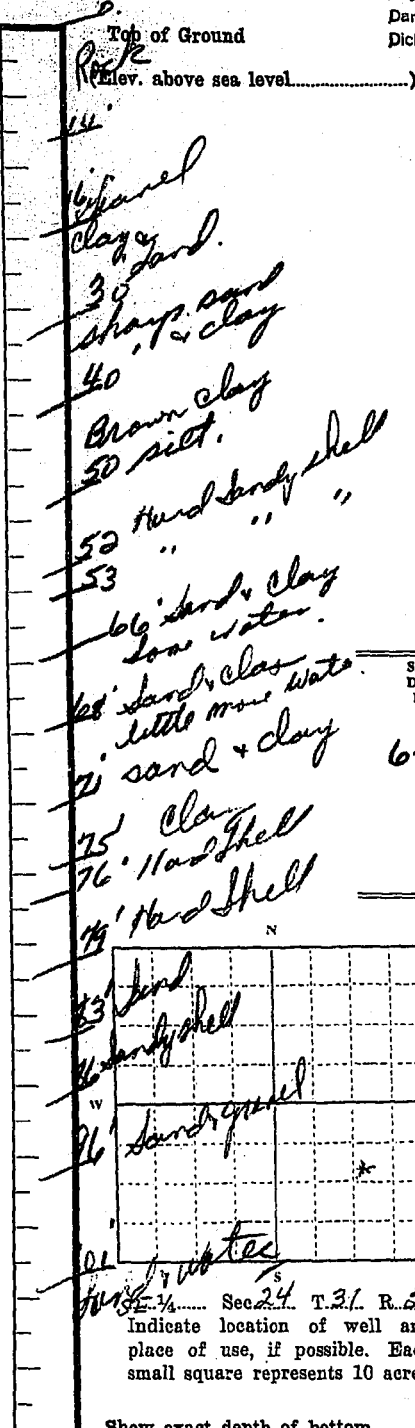 0'
Top of Ground
Rock
(Elev. above sea level..........)
14'
16'
Gravel
clay &
sand.
30'
sharp sand
" & clay
40
Brown clay
50 silt.
Hard Sandy shell
52 " " "
53
66' Sand & clay
Some water.
68' Sand & clay
little more wate
71' sand & clay
75' Clay
76' Hard Shell
79' Hard Shell
N
83' Sand
86 Sandy shell
W
96' Sand & gravel
101'
& water
S
SE ¼ Sec 24 T. 31 R.
Indicate location of well an
place of use, if possible. Eac
small square represents 10 acre
Show exact depth of bottom